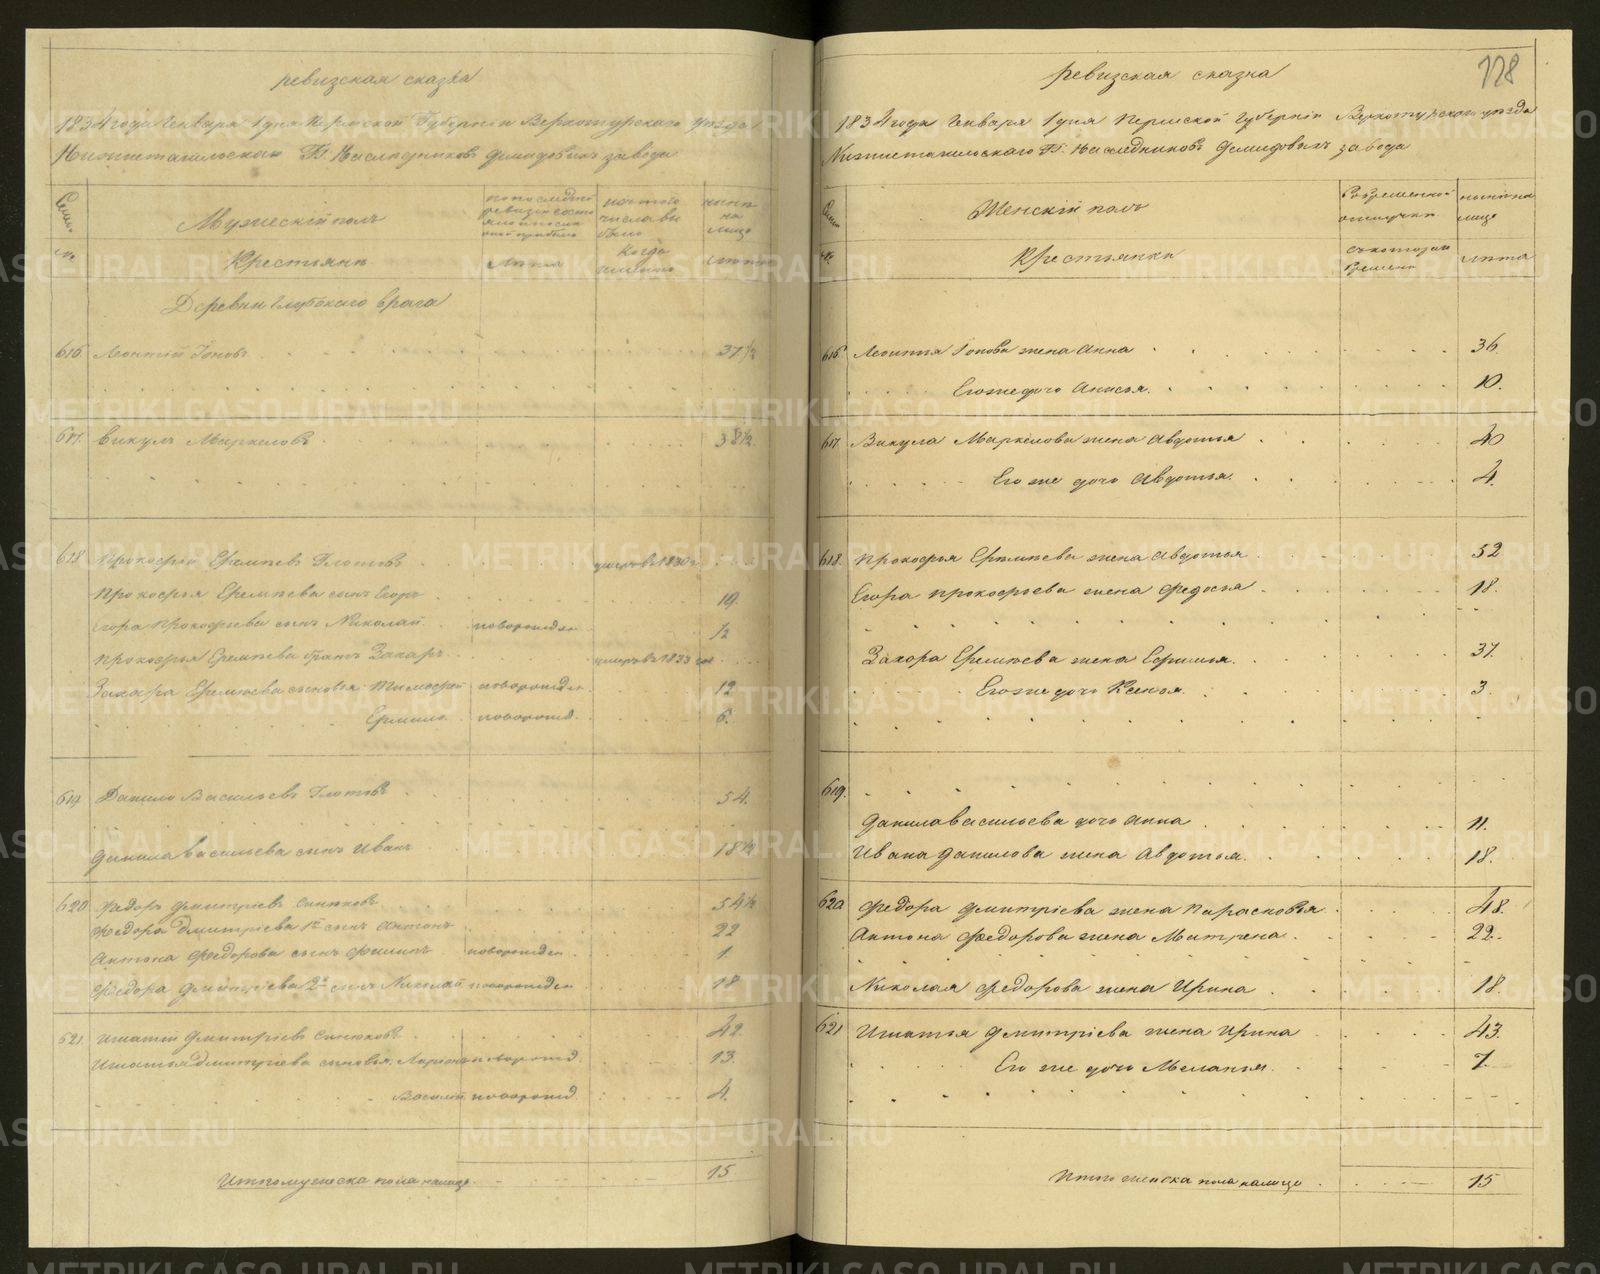 ревизская сказка
1834 года Генваря 1 дня Пермской Губернiи Верхотурскаго уезда
Нижнетагильскаго ГГ. Наследниковъ Демидовыхъ завода
Семьи Мужескiй полъ
по последней ревизiи состояло и после оной прибыло
изъ того числа выбыло
ныне на лицо
№ Крестьянъ Лета Когда именно лета
Деревни Глубокаго врага
616 Леонтiй Iоновъ 37½
617. Викулъ Маркеловъ 38½
618 Прокофiй Еремеевъ Глотовъ умеръ въ 1830 г.
Прокофья Еремеева сынъ Егоръ 19.
Егора Прокофьева сынъ Николай новорожден ½
Прокофья Еремеева братъ Захаръ умеръ въ 1833 год
Захара Еремеева сыновья Тимофей новорожден 12
Ермилъ новорожд. 6.
619 Данило Васильевъ Глотовъ 54.
Данила Васильева сынъ Иванъ 18½
620 Федоръ Дмитрiевъ Синюковъ 54½
Федора Дмитрiева 1й сынъ Антонъ 22
Антона Федорова сынъ Филипъ новорожден 1.
Федора Дмитрiева 2й сынъ Николай новорожден 18
621 Игнатiй Дмитрiевъ Синюковъ 42.
Игнатья Дмитрiева сыновья Ларiонъ новорожд. 13.
Василiй новорожд. 4.
Итого мужеска пола налицо 15
128
ревизская сказка
1834 года Генваря 1 дня Пермской Губернiи Верхотурскаго уезда
Нижнетагильскаго ГГ. Наследниковъ Демидовыхъ завода
Семьи Женскiй полъ
Во временной отлучке
ныне на лицо
№ Крестьянки съ котораго времени лета
616 Леонтья Iонова жена Анна 36.
Его же дочь Анисья. 10.
617 Викула Маркелова жена Авдотья 40
Его же дочь Авдотья. 4.
618. Прокофья Еремеева жена Авдотья 52
Егора Прокофьева жена Федосья 18.
Захара Еремеева жена Ефимья. 37.
Его же дочь Ксенья. 3.
619.
Данила Васильева дочь Анна 11.
Ивана Данилова жена Авдотья. 18.
620 Федора Дмитрiева жена Парасковья 48.
Антона Федорова жена Матрена. 22.
Николая Федорова жена Ирина 18.
621 Игнатья Дмитрiева жена Ирина 43.
Его же дочь Меланья. 7.
Итого женска пола налицо 15
METRIKI.GASO-URAL.RU